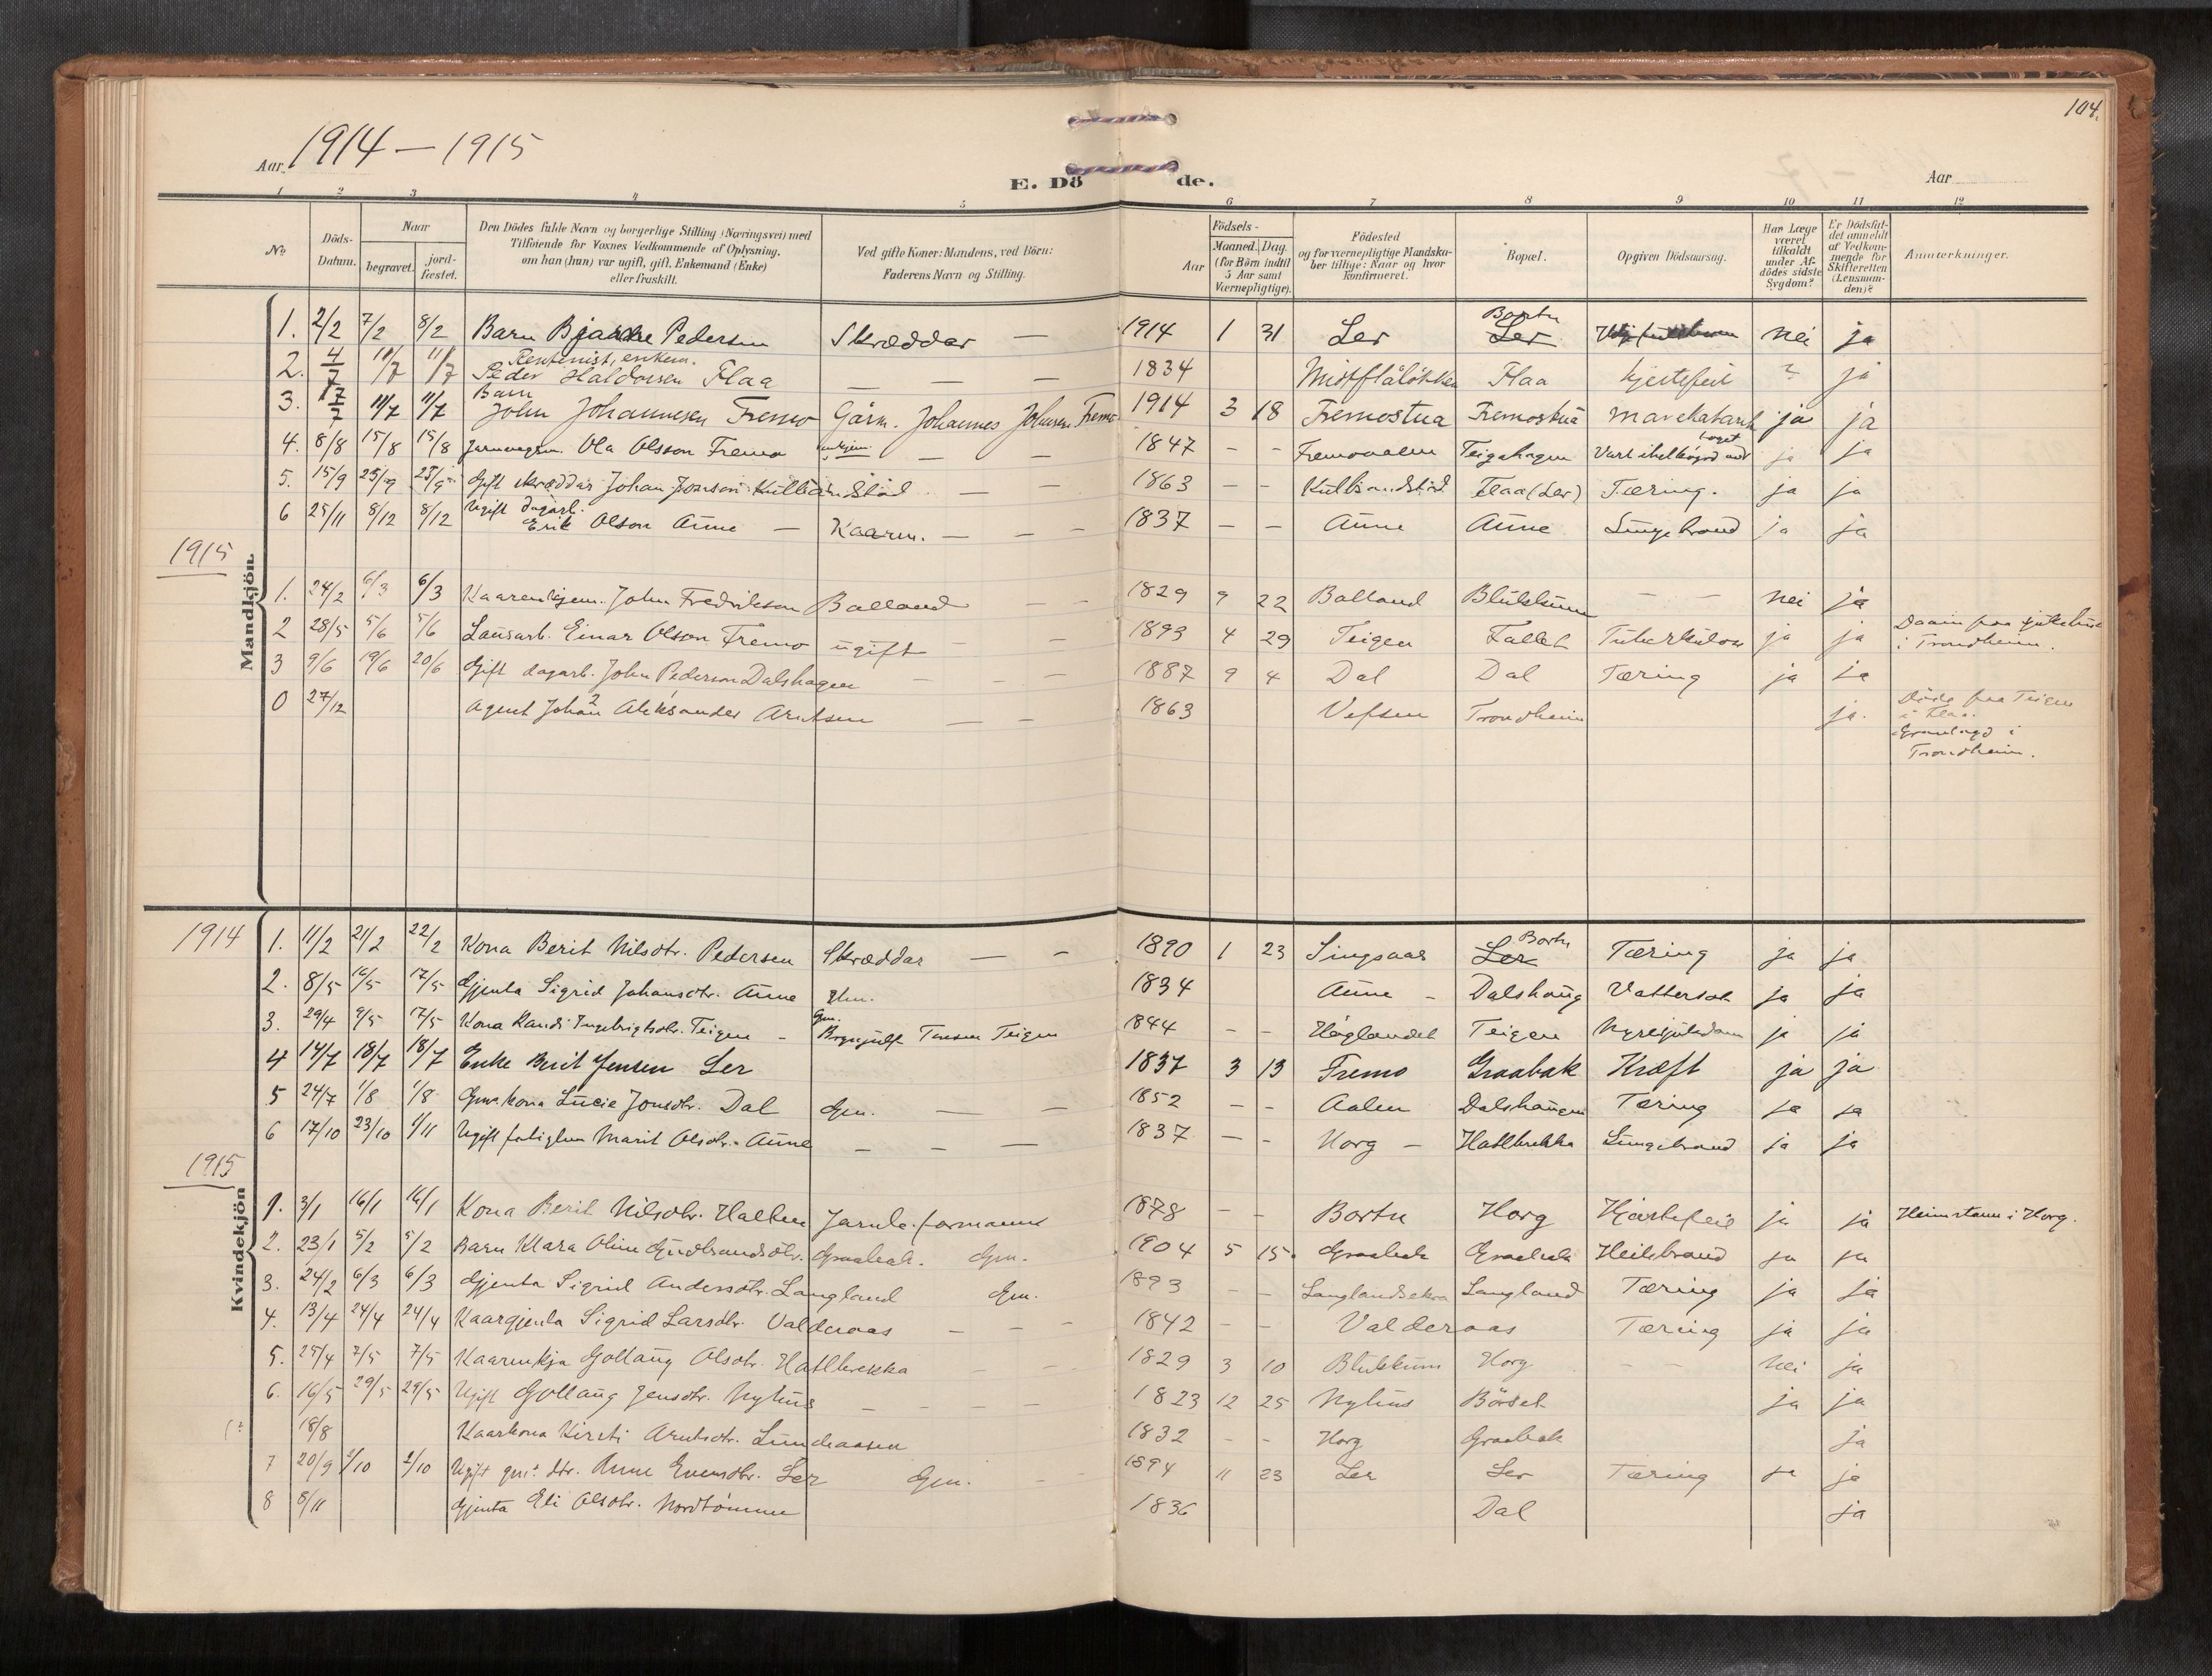 104.
Aar 1914 — 1915
E. Döde.
Aar
1 2 3 4 5 6 7 8 9 10 11 12
No.
Döds-Datum.
Naar
begravet.
jord-fæstet.
Den Dödes fulde Navn og borgerlige Stilling (Næringsvei) med
Tilföiende for Voxnes Vedkommende af Oplysning,
om han (hun) var ugift, gift, Enkemand (Enke)
eller fraskilt.
Ved gifte Koner: Mandens, ved Börn:
Faderens Navn og Stilling.
Födsels-
Aar
Maaned. Dag.
(for Börn indtil
5 Aar samt
Værnepligtige).
Födested
og for værnepligtige Mandska-
ber tillige: Naar og hvor
konfirmeret.
Bopæl.
Opgiven Dödsaarsag.
Har Læge
været
tilkaldt
under Af-
dödes sidste
Sygdom?
Er Dödsfal-
det anmeldt
af Vedkom-
mende for
Skifteretten
(Lensman-
den)?
Anmærkninger.
Mandkjön.
1. 2/2 7/2 8/2 Barn Bjarne Pedersen Skræddar — 1914 1 31 Ler Ler Bortn nei ja
2. 4/7 11/7 11/7 Rentenist, enkem. Peder Haldorsen Flaa — — — 1834 Flaa hjertefeil ? ja
3. 7/7 11/7 11/7 Barn John Johannesen Fremo Gårm. Johannes Johnsen Fremo 1914 3 18 Fremostua Fremostua ja ja
4. 8/8 15/8 15/8 Ola Olsson Fremo — — 1847 - - Teigahagen ja ja
5. 15/9 25/9 25/9 Gift skræddar Johan Jonson Kulbrandstad — — 1863 - - Flaa (Ler) Tæring. ja ja
6 25/11 8/12 8/12 Ugift dagarb. Erik Olson Aune — Kaarm. — — — 1837 - - Aune Aune Lungebrand ja ja
1915
1. 24/2 6/3 6/3 John Fredrikson Balland — — 1829 9 22 Balland Blukkum — — nei ja
2 28/5 5/6 5/6 Lausarb. Einar Olson Fremo ugift — — 1893 4 29 Teigen Fallet Tuberkulose ja ja Daain paa sjukehus
i Trondheim.
3 9/6 19/6 20/6 Gift dagarb. John Pederson Dalshagen — — — 1887 9 4 Dal Dal Tæring ja ja
0 27/12 Agent Johan Aleksander Arntsen — — 1863 Vefsen Trondheim ja. Döde paa Teigen
i Flaa.
Gravlagd i
Trondheim.
Kvindekjön
1914
1. 11/2 21/2 22/2 Kona Berit Nilsdtr. Pedersen Skræddar — - 1890 1 23 Singsaas Ler Bortn Tæring ja ja
2. 8/5 16/5 17/5 Gjenta Sigrid Johansdtr. Aune 1834 Aune - Dalshaug Vattersot ja ja
3. 29/4 9/5 17/5 Kona Randi Ingebrigtsdtr. Teigen - Gm. Brynjulf Tensen Teigen 1844 - - Höglandet Teigen Nyresjukdom ja ja
4 14/7 18/7 18/7 Enke Berit Jensen Ler 1837 3 13 Fremo Graabak Kræft ja ja
5 24/7 1/8 1/8 Gm. kona Lucie Jonsdtr. Dal Gm. — — 1852 - - Aalen Dalshaugen Tæring ja ja
6 17/10 23/10 1/11 Ugift fatiglem Marit Olsdtr. Aune — — — 1837 - - Horg - Hatlbrekka Lungebrand ja ja
1915
1. 3/1 16/1 16/1 Kona Berit Nilsdtr. Halten Jarnb. formann 1878 - - Bortn Horg Hjartefeil ja ja Heimstamn i Horg.
2. 23/1 5/2 5/2 Barn Klara Oline Gudbrandsdtr. Graabak. Gm. 1904 5 15. Graabak Graabak Heilebrand ja ja
3. 24/2 6/3 6/3 Gjenta Sigrid Andersdtr. Langland Gm. 1893 - - Langland Tæring ja ja
4. 13/4 24/4 24/4 Kaargjenta Sigrid Larsdtr. Valderaas — — — 1842 - - Valderaas Tæring ja ja
5. 25/4 7/5 7/5 Kaarenkja Gollaug Olsdtr. Hatlbrekka — — 1829 3 10 Blukkum Horg — — nei ja
6. 16/5 29/5 29/5 Ugift Gollaug Jensdtr. Nyhus — — — — 1823 12 25 Nyhus Börset ja ja
18/8 Kaarkona Kirsti Arntsdtr. Lundaasen 1832 - - Horg Graabak ja
7 20/9 2/10 2/10 Ugift Anne Evensdtr. Ler Gm. — 1894 11 23 Ler Ler Tæring ja ja
8 8/11 Gjenta Eli Olsdtr. Nordtömme 1836 Dal ja